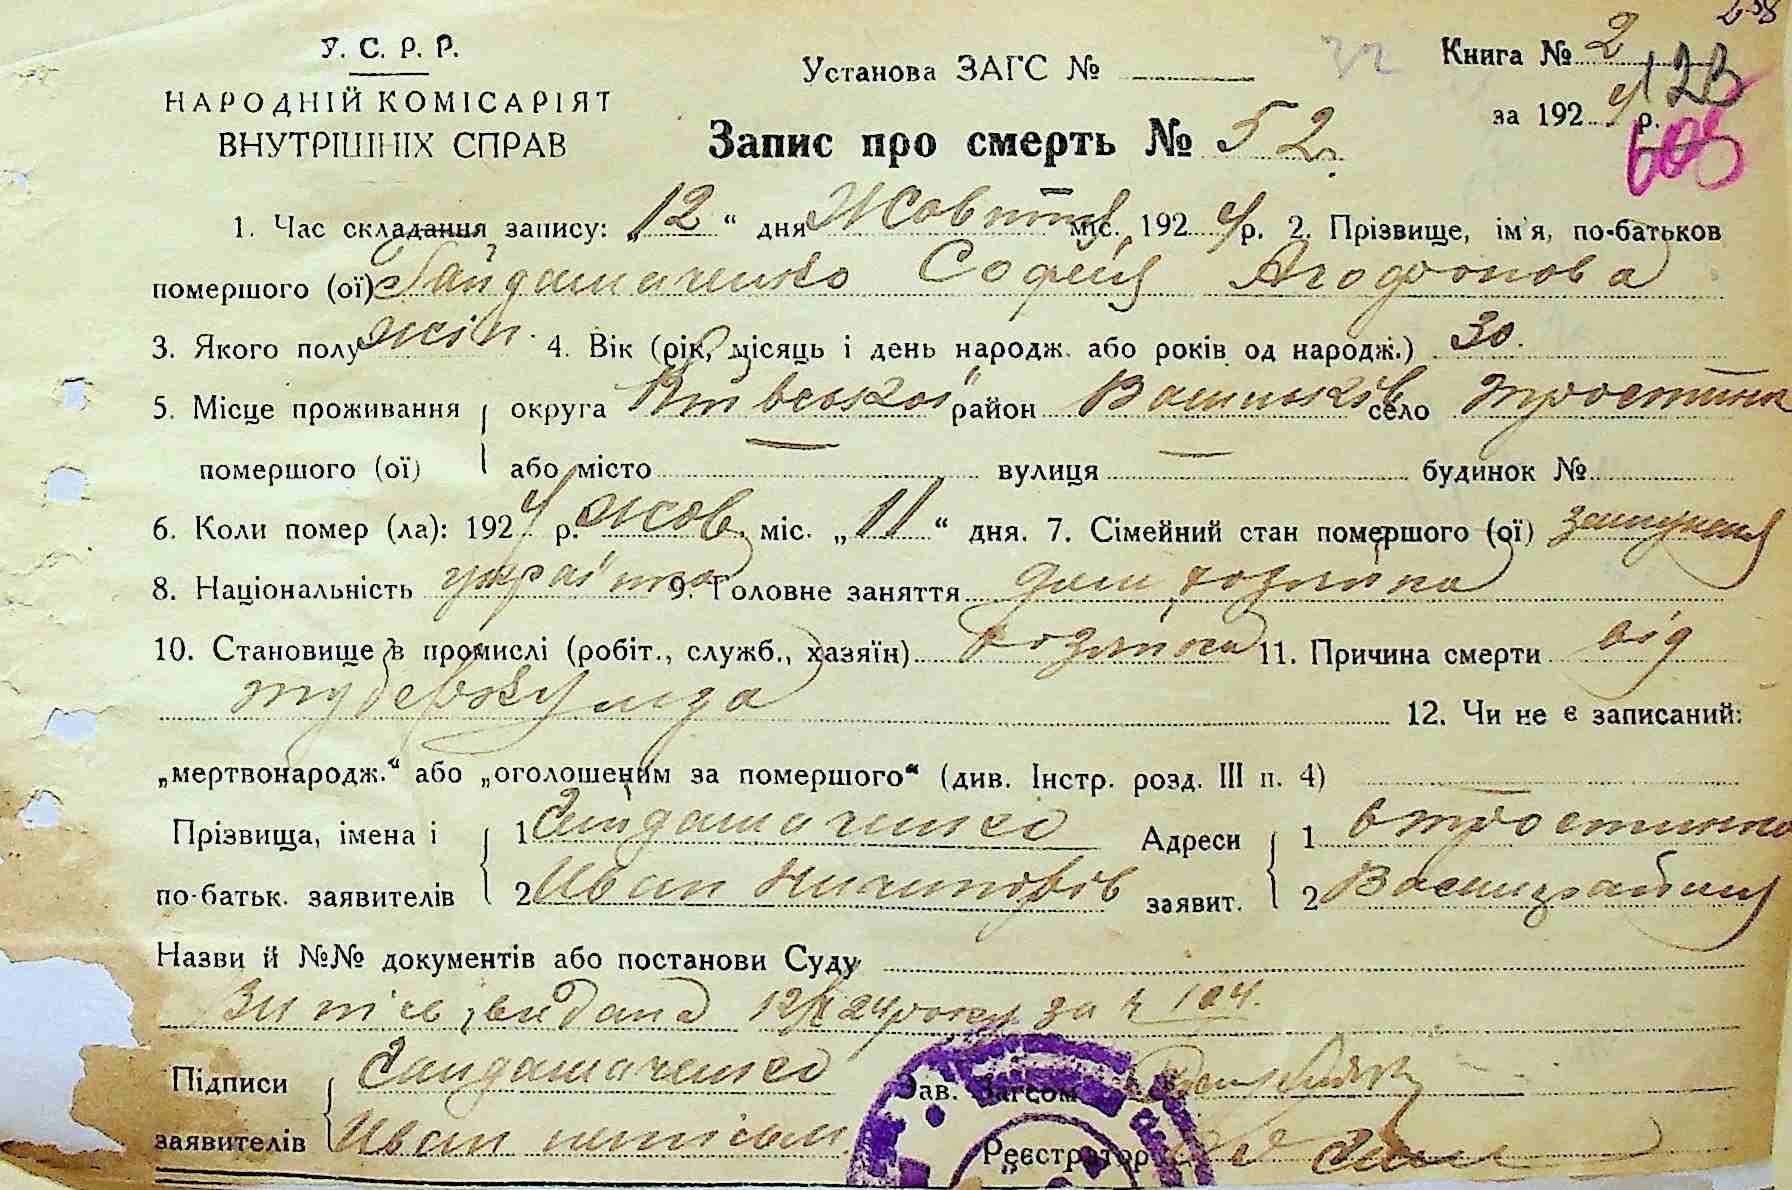 У. С. Р. Р.
НАРОДНІЙ КОМІСАРІЯТ
ВНУТРІШНІХ СПРАВ
Установа ЗАГС №
Книга № 2
за 1924 р.
123
605
Запис про смерть № 52
1. Час складання запису: „12“ дня Жовтня міс. 1924 р. 2. Прізвище, ім'я, по-батьков
помершого (ої) Гайдамаченко Софія Агофонова
3. Якого полу жін. 4. Вік (рік, місяць і день народж. або років од народж.) 30.
5. Місце проживання округа район село
помершого (ої) або місто — вулиця — будинок №
6. Коли помер (ла): 1924 р. жов. міс. „11“ дня. 7. Сімейний стан помершого (ої) замужняя
8. Національність українка 9. Головне заняття дом. хозяйка
10. Становище в промислі (робіт., служб., хазяїн) хозяйка 11. Причина смерти від
туберкульоза
12. Чи не є записаний:
„мертвонародж.“ або „оголошеним за помершого“ (див. Інстр. розд. III п. 4) —
Прізвища, імена і 1 Гайдамаченко Адреси 1
по-батьк. заявителів 2 Иван заявит. 2
Назви й №№ документів або постанови Суду
видана 12/X 24 року за № 104.
Підписи Гайдамаченко Зав. Загсом
заявителів Иван Реєстратор